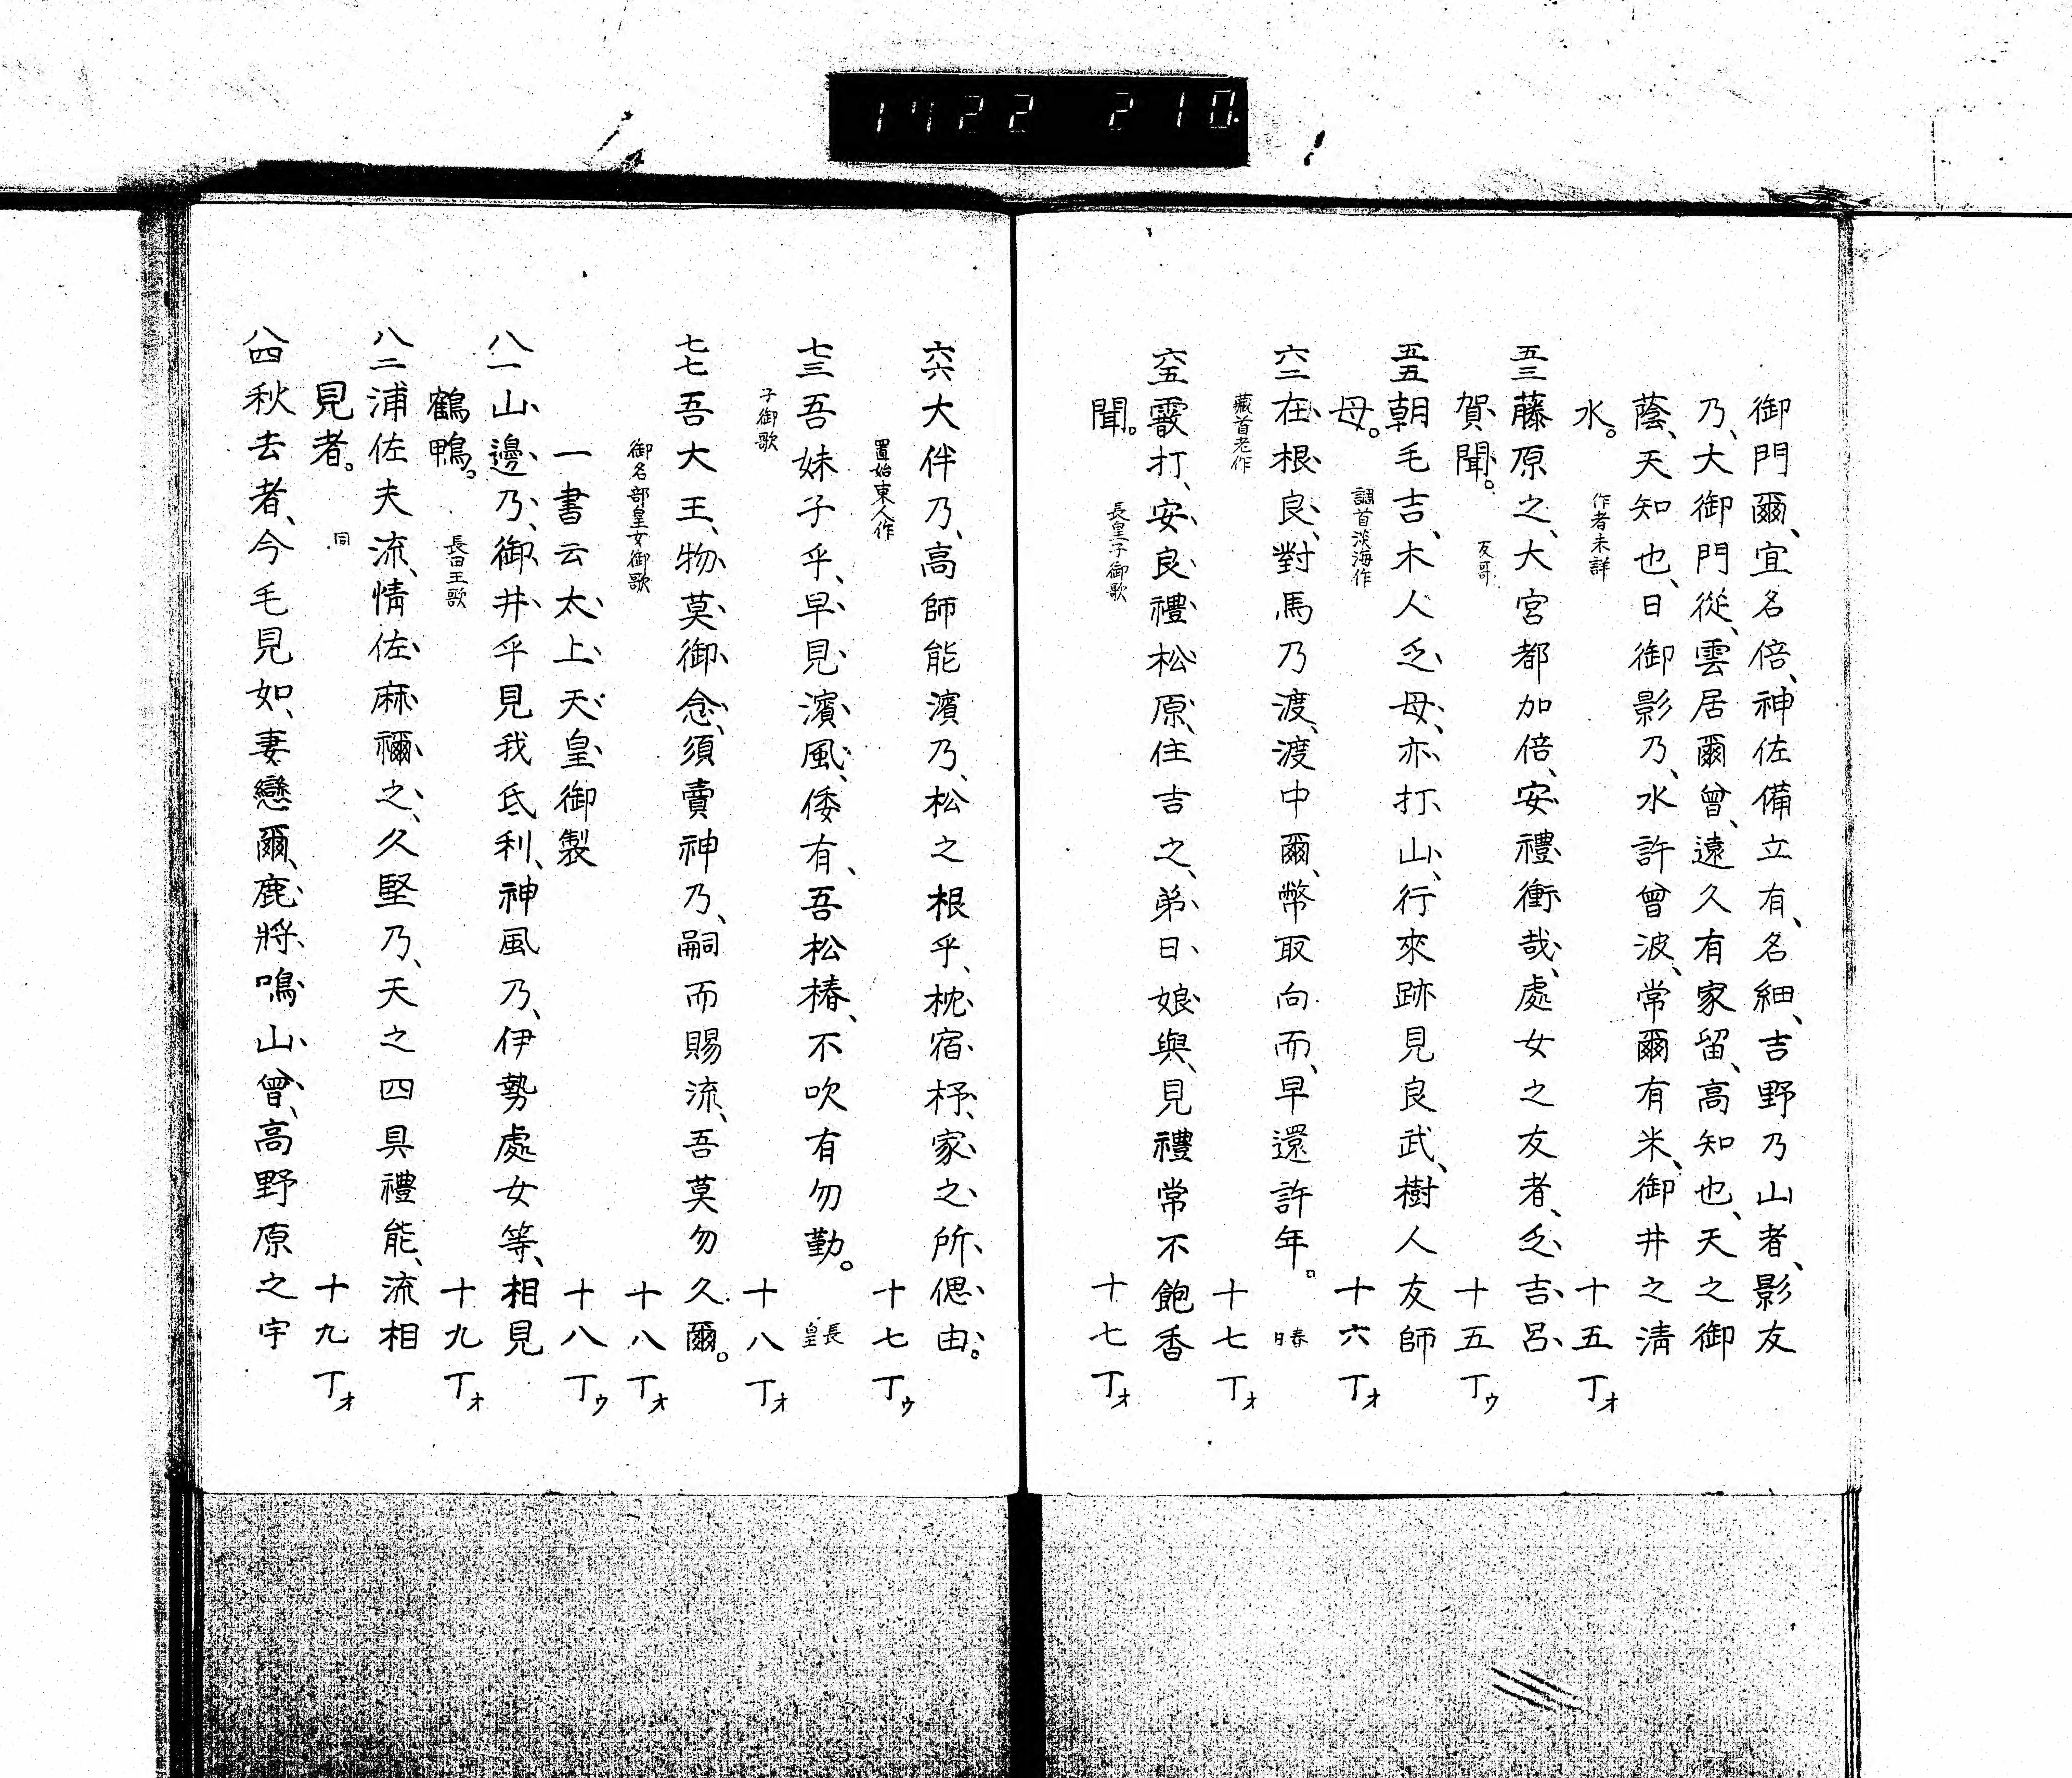 1422 210.
御門爾、宜名倍、神佐備立有、名細、吉野乃山者、影友
乃、大御門從、雲居爾曾、遠久有家留、高知也、天之御
蔭、天知也、日御影乃、水許曾波、常爾有米、御井之淸
水。 作者未詳 十五丁オ
五三 藤原之、大宮都加倍、安禮衝哉、處女之友者、乏吉呂
賀聞。 反哥 十五丁ウ
五五 朝毛吉、木人乏母、亦打山、行來跡見良武、樹人友師
母。 調首淡海作 十六丁オ
六二 在根良、對馬乃渡、渡中爾、幣取向而、早還許年。 春日
藏首老作 十七丁オ
六五 霰打、安良禮松原、住吉之、弟日娘與、見禮常不飽香
聞。 長皇子御歌 十七丁オ
六六 大伴乃、高師能濱乃、松之根乎、枕宿杼、家之所偲由。
置始東人作 十七丁ウ
七三 吾妹子乎、早見濱風、倭有、吾松椿、不吹有勿勤。 長皇
子御歌 十八丁オ
七七 吾大王、物莫御念、須賣神乃、嗣而賜流、吾莫勿久爾。
御名部皇女御歌 十八丁オ
一書云太上天皇御製 十八丁ウ
八一 山邊乃、御井乎見我氐利、神風乃、伊勢處女等、相見
鶴鴨。 長田王歌 十九丁オ
八二 浦佐夫流、情佐麻禰之、久堅乃、天之四具禮能、流相
見者。 同 十九丁オ
八四 秋去者、今毛見如、妻戀爾、鹿將鳴山曾、高野原之宇